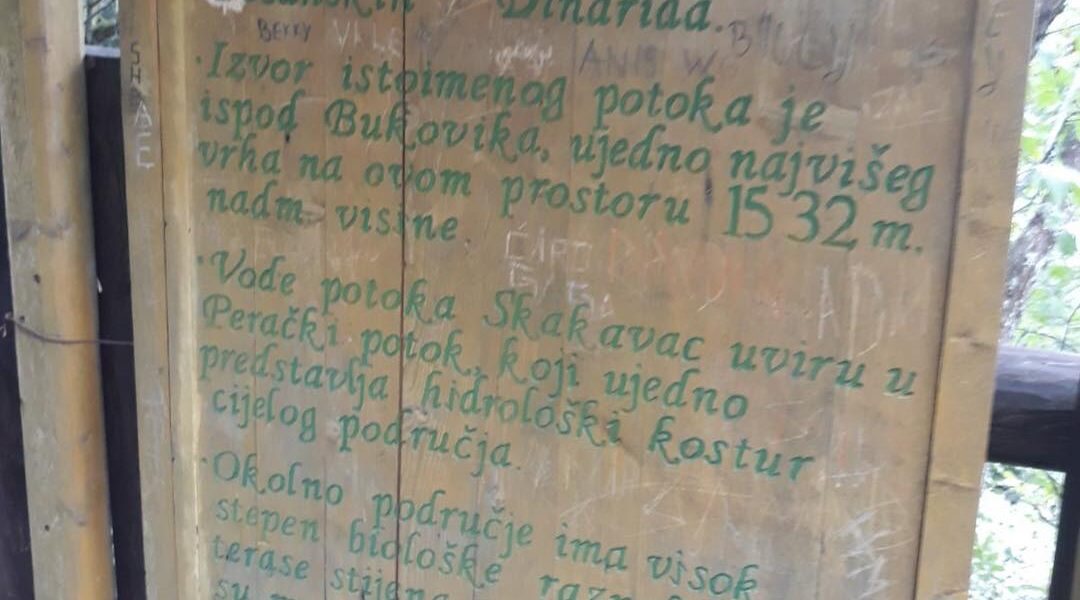 Dinarida.
BEKKY
· Izvor istoimenog potoka je
ispod Bukovika, ujedno najvišeg
vrha na ovom prostoru 1532 m.
nadm visine.
· Vode potoka Skakavac uviru u
Perački potok, koji ujedno
predstavlja hidrološki kostur
cijelog područja.
· Okolno područje ima visok
stepen biološke
terase stijena
su